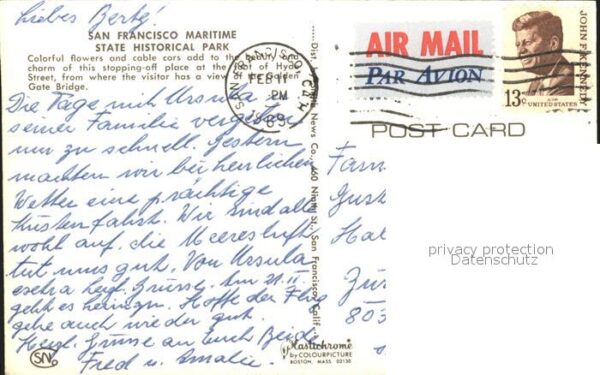 Liebes Berty!
SAN FRANCISCO MARITIME
STATE HISTORICAL PARK
Colorful flowers and cable cars add to the beauty and
charm of this stopping-off place at the foot of Hyde
Street, from where the visitor has a view of the Golden
Gate Bridge.
Die Tage mit Ursula u.
seiner Familie vergehen
nur zu schnell. Gestern
machten wir bei herrlichem
Wetter eine prächtige
Küstenfahrt. Wir sind alle
wohl auf, die Meeresluft
tut uns gut. Von Ursula
herzl. Grüsse. Am 21. II.
geht es heimzu. Hoffe der Flug
gehe auch wieder gut.
Herzl. Grüsse an Euch Beide
Fred u. Amalie.
SN
Dist. by Smith News Co., 460 Ninth St., San Francisco, Calif.
Plastichrome
by COLOURPICTURE
BOSTON, MASS. 02130
SAN FRANCISCO, CA
FEB 11
PM
1969
AIR MAIL
PAR AVION
JOHN F. KENNEDY
13c
UNITED STATES
POST CARD
Fam
Gust
Ha
Zür
803
privacy protection
Datenschutz